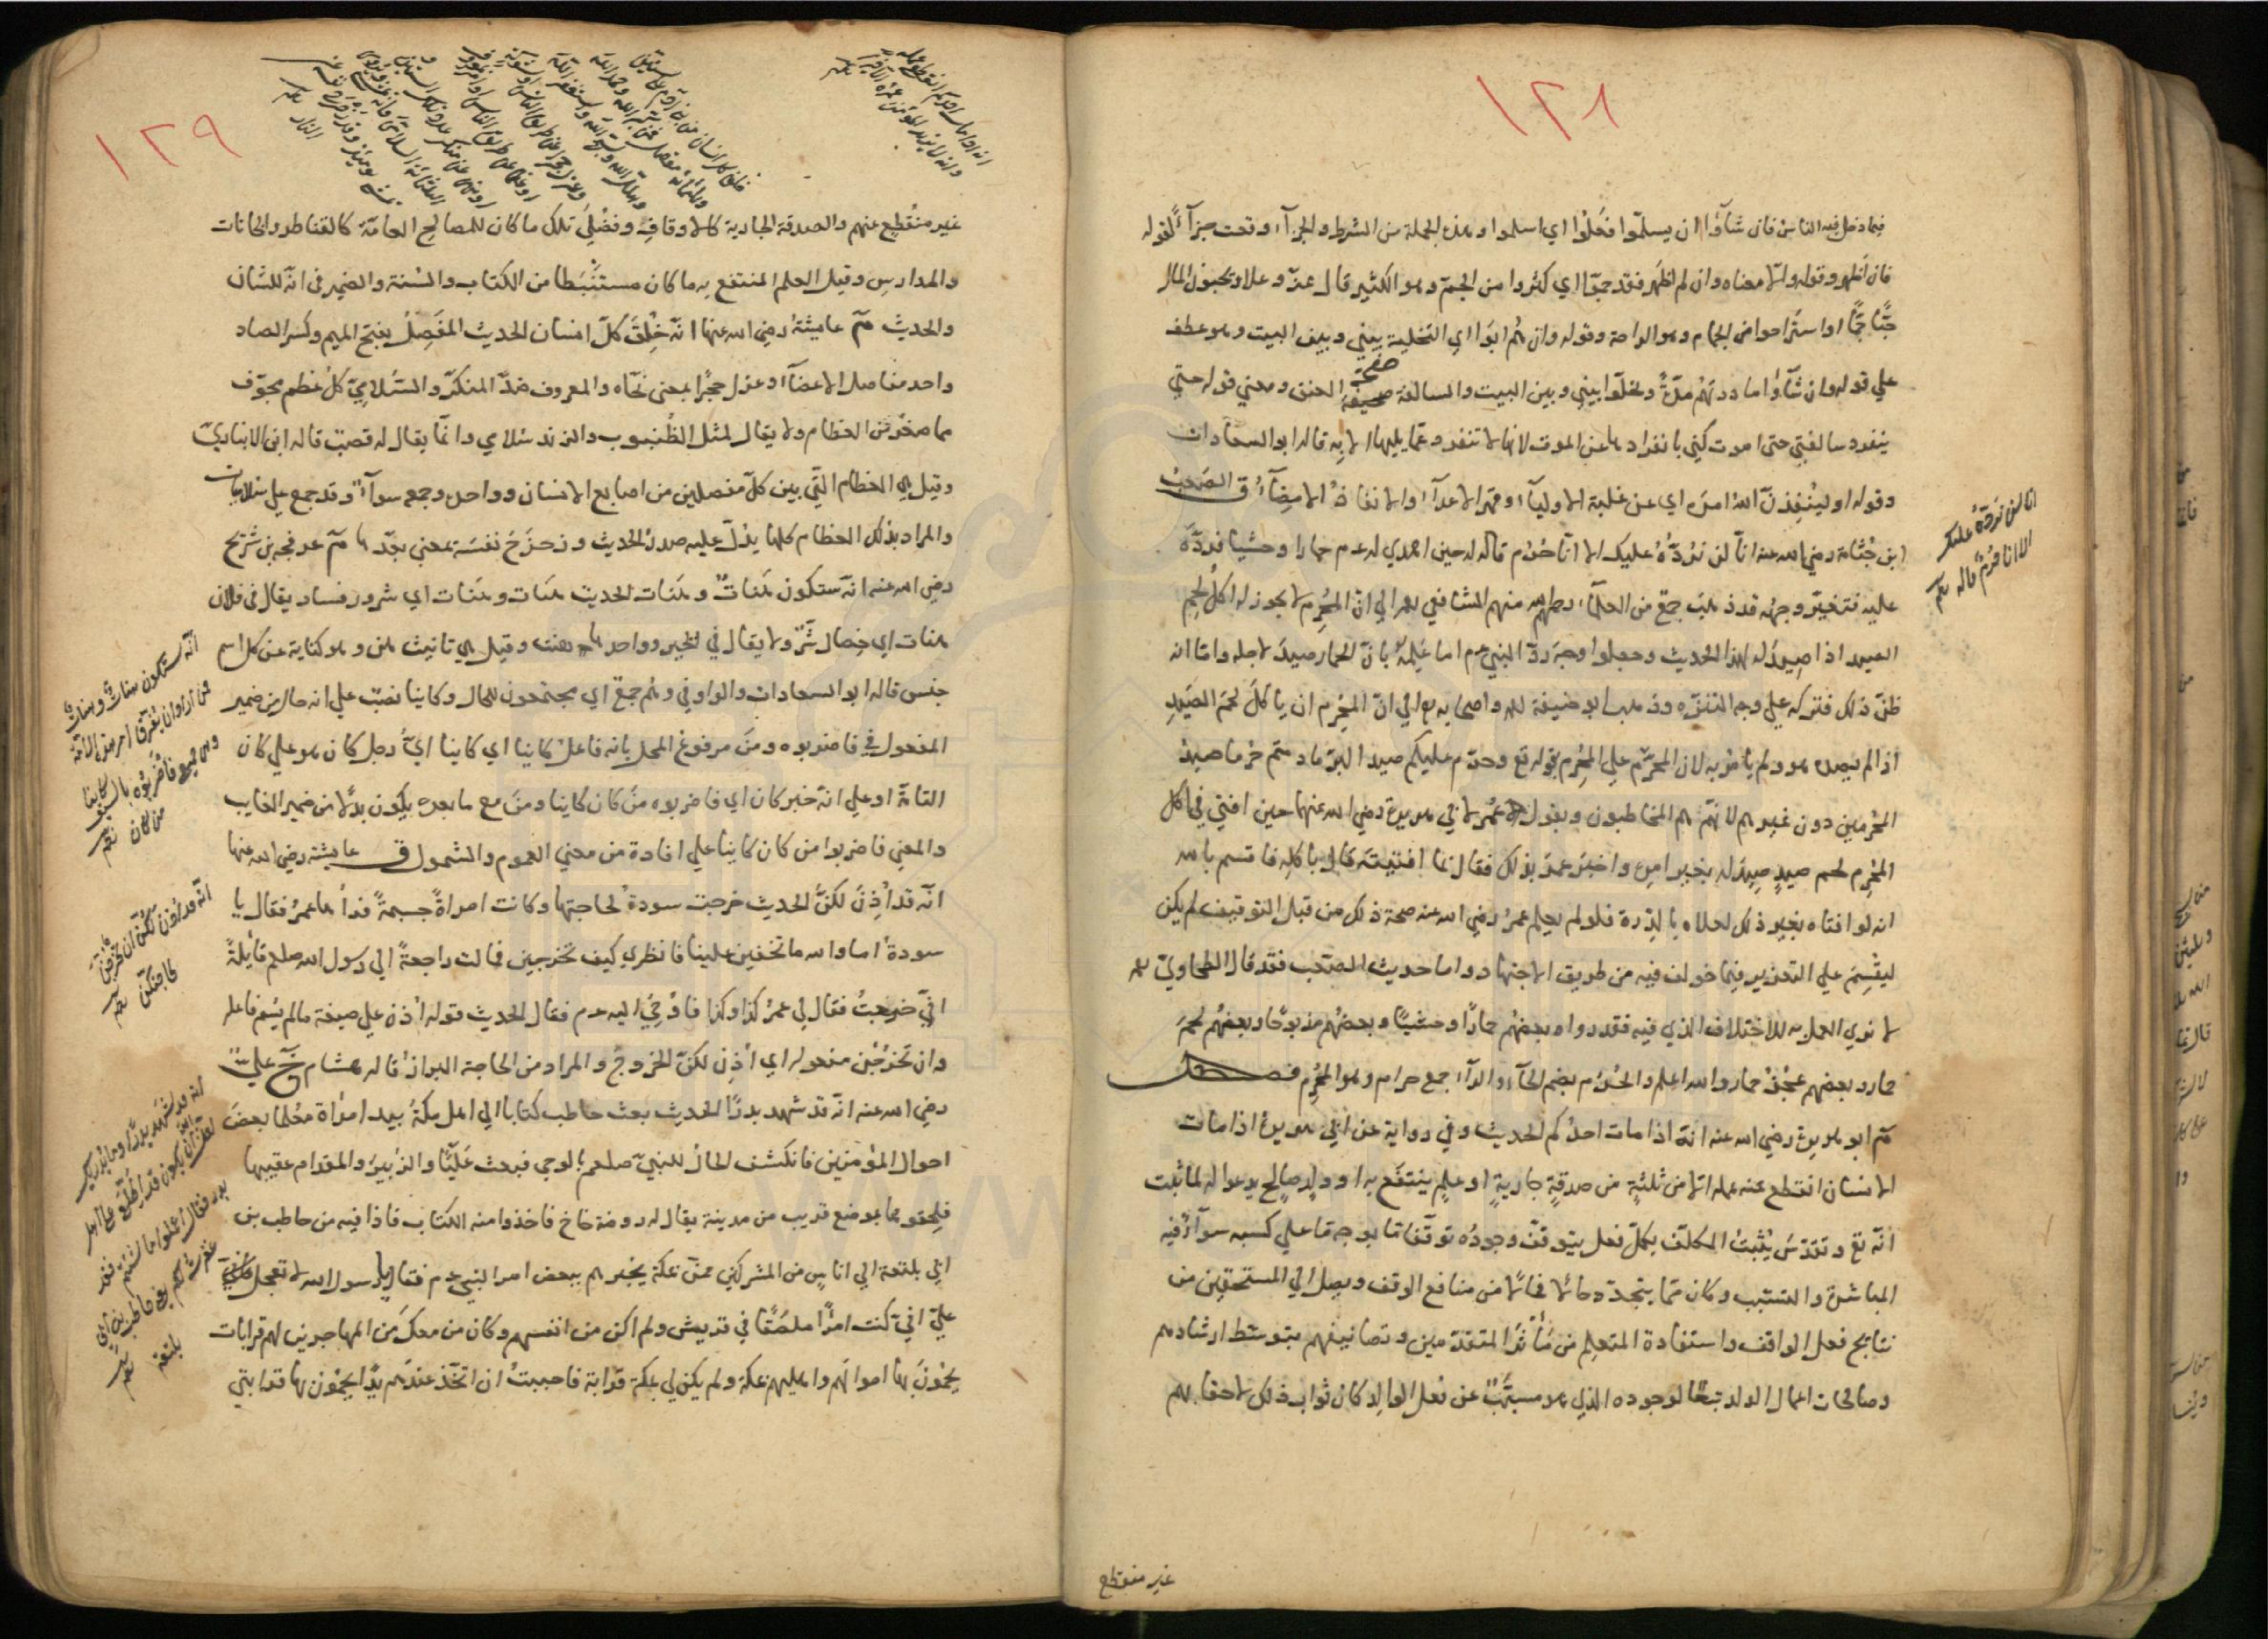 ١٢٨
فيما دخل فيه الناس فان شاؤا ان يسلموا فعلوا اي اسلموا وهذه الجملة من الشرط والجزاء وقعت جزاء لقوله
فان اظهر وقوله والا معناه وان لم اظهر فقد جموا اي كثروا من الجم وهو الكثير قال عز وعلا وتحبون المال
حبا جما او استراحوا من الجمام وهو الراحة وقوله وان هم ابوا اي التخلية بيني وبين البيت وهو عطف
علي قوله وان شاؤا ماددتهم مدة ويخلوا بيني وبين البيت والسالفة صفحة العنق ومعني قوله حتي
ينفرد سالفتي حتي اموت كني بانفرادها عن الموت لانها لا تنفرد عما يليها الا به قاله ابو السعادات
وقوله او لينفذن الله امره اي عن غلبة الاولياء وقهر الاعداء والانفاذ الامضاء ق الصعب
ابن جثامة رضي الله عنه انا لن نرده عليك الا انا حرم قاله له حين اهدي له عم حمارا وحشيا فرده
عليه فتغير وجهه قد ذهب جمع من العلماء رحمهم الله منهم الشافعي رحمه الي ان المحرم لا يجوز له اكل لحم
الصيد اذا صيد له لهذا الحديث وجعلوا وجه رد النبي عم اما علمه بان الحمار صيد لاجله واما انه
ظن ذلك فتركه علي وجه التنزه وذهب ابو حنيفة رحمه الله واصحابه رح الي ان المحرم ان ياكل لحم الصيد
اذا لم يصده هو ولم يامر به لان المحرم علي المحرم بقوله تع وحرم عليكم صيد البر ما دمتم حرما صيد
المحرمين دون غيرهم لانهم هم المخاطبون وبقول عمر لابي هريرة رضي الله عنهما حين افتي في اكل
المحرم لحم صيد صيد له بغير امره واخبر عمر بذلك فقال بما افتيته قال باكله فاقسم بالله
انه لو افتاه بغير ذلك لعلاه بالدرة فلو لم يعلم عمر رضي الله عنه صحة ذلك من قبل التوقيف لم يكن
ليقسم علي التعزير فيما خولف فيه من طريق الاجتهاد واما حديث الصعب فقد قال الطحاوي رحمه
لا نري العمل به للاختلاف الذي فيه فقد رواه بعضهم حمارا وحشيا وبعضهم مذبوحا وبعضهم لحم
حمار وبعضهم عجز حمار والله اعلم والحرم بضم الحاء والراء جمع حرام وهو المحرم فصل
م ابو هريرة رضي الله عنه انه اذا مات احدكم الحديث وفي رواية عن ابي هريرة اذا مات
الانسان انقطع عنه عمله الا من ثلثة من صدقة جارية او علم ينتفع به او ولد صالح يدعو له لما ثبت
انه تع وتقدس يثبت المكلف بكل فعل يتوقف وجوده توقفا ما بوجه ما علي كسبه سواء فيه
المباشرة والتسبب وكان مما يتجدد حالا فحالا من منافع الوقف ويصل الي المستحقين من
نتايج فعل الواقف واستفادة المتعلم من مآثر المتقدمين وتصانيفهم بتوسط ارشادهم
وصالحات اعمال الولد تبعا لوجوده الذي هو مسبب عن فعل الوالد كان ثواب ذلك لاحقا بهم
غير منقطع
انا لن نرده عليك
الا انا حرم قاله
١٢٩
غير منقطع عنهم والصدقة الجارية كالاوقاف وفضلي تلك ما كان للمصالح العامة كالقناطر والخانات
والمدارس وقيل العلم المنتفع به ما كان مستنبطا من الكتاب والسنة والضمير في انه للشان
والحديث م عايشة رضي الله عنها انه خلق كل انسان الحديث المفصل بفتح الميم وكسر الصاد
واحد مفاصل الاعضاء وعزل حجرا بمعني نحاه والمعروف ضد المنكر والسلامي كل عظم مجوف
مما صغر من العظام ولا يقال لمثل الظنبوب والزند سلامي وانما يقال له قصب قاله ابن الانباري
وقيل هي العظام التي بين كل مفصلين من اصابع الانسان وواحده وجمعه سواء وقد جمع علي سلاميات
والمراد بذلك العظام كلها يدل عليه صدر الحديث وزحزح نفسه بمعني بعدها م عرفجة بن شريح
رضي الله عنه انه ستكون هنات وهنات الحديث هنات وهنات اي شرور وفساد يقال في فلان
هنات اي خصال شر ولا يقال في الخير وواحدها هنت وقيل هي تانيث هن وهو كناية عن كل اسم
جنس قاله ابو السعادات والواو في وهم جمع اي مجتمعون للحال وكاينا نصب علي انه حال من ضمير
المفعول في فاضربوه ومن مرفوع المحل بانه فاعل كاينا اي كاينا اي رجل كان هو علي كان
التامة او علي انه خبر كان اي فاضربوه من كان كاينا ومن مع ما بعده يكون بدلا من ضمير الغايب
والمعني فاضربوا من كان كاينا علي افادة من معني العموم والشمول ق عايشة رضي الله عنها
انه قد اذن لكن الحديث خرجت سودة لحاجتها وكانت امراة جسيمة فرآها عمر فقال يا
سودة اما والله ما تخفين علينا فانظري كيف تخرجين فمالت راجعة الي رسول الله صلعم قايلة
اني خرجت فقال لي عمر كذا وكذا فاوحي اليه عم فقال الحديث قوله اذن علي صيغة ما لم يسم فاعله
وان تخرجن مفعوله اي اذن لكن الخروج والمراد من الحاجة البراز قاله هشام خ علي
رضي الله عنه انه قد شهد بدرا الحديث بعث حاطب كتابا الي اهل مكة بيد امراة معلما بعض
احوال المؤمنين فانكشف الحال للنبي صلعم بالوحي فبعث عليا والزبير والمقدام عقيبها
فلحقوها بموضع قريب من مدينة يقال له روضة خاخ فاخذوا منه الكتاب فاذا فيه من حاطب بن
ابي بلتعة الي اناس من المشركين ممن بمكة يخبرهم ببعض امر النبي عم فقال يا رسول الله لا تعجل
علي اني كنت امرا ملصقا في قريش ولم اكن من انفسهم وكان من معك من المهاجرين لهم قرابات
يحمون بها اموالهم واهليهم بمكة ولم يكن لي بمكة قرابة فاحببت ان اتخذ عندهم يدا يحمون بها قرابتي
انه اذا مات احدكم انقطع عمله
وانه لا يزيد المؤمن عمره الا خيرا
انه ستكون هنات وهنات
فمن اراد ان يفرق امر هذه الامة
وهي جميع فاضربوه بالسيف كاينا
من كان
انه قد اذن لكن ان تخرجن
لحاجتكن
انه قد شهد بدرا وما يدريك
لعل الله ان يكون قد اطلع علي اهل
بدر فقال اعملوا ما شئتم فقد
غفرت لكم
بلتعة